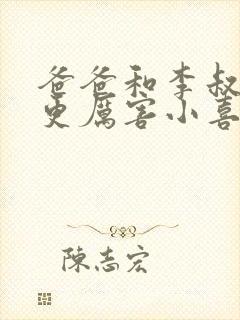 爸爸和李叔
更厲害小喜
陳志宏